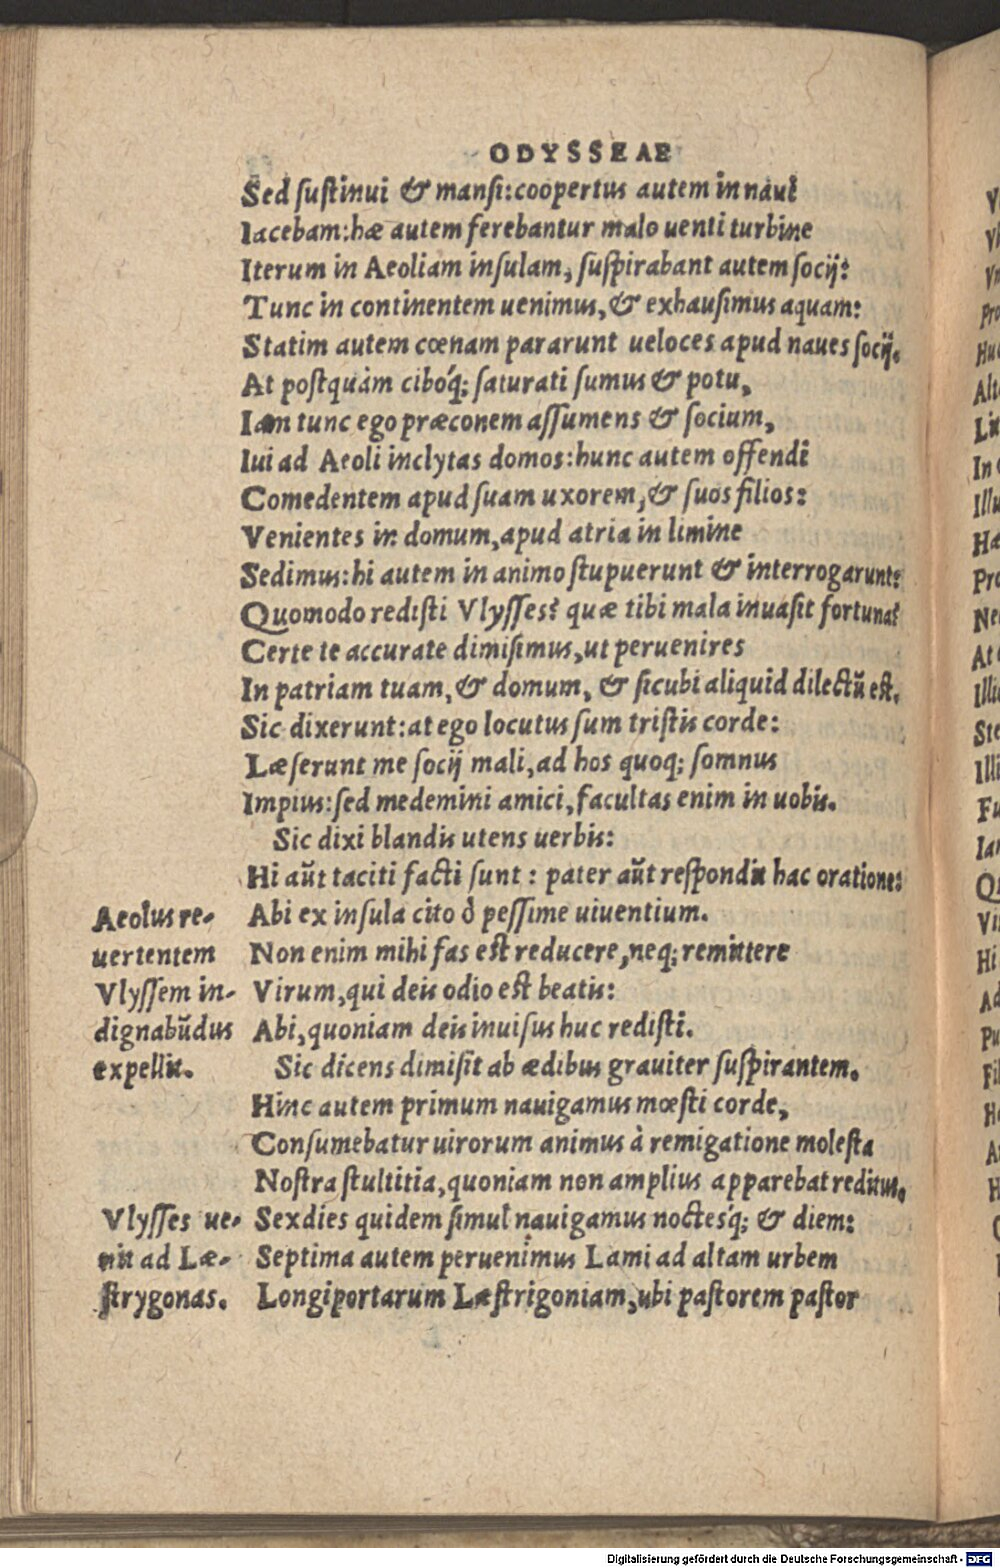 ODYSSEAE
Sed ſuſtinui & manſi:coopertus autem in naui
Iacebam:hæ autem ferebantur malo uenti turbine
Iterum in Aeoliam inſulam, ſuſpirabant autem ſocij:
Tunc in continentem uenimus, & exhauſimus aquam:
Statim autem cœnam pararunt ueloces apud naues ſocij.
At poſtquàm cibóq; ſaturati ſumus & potu,
Iam tunc ego præconem aſſumens & ſocium,
Iui ad Aeoli inclytas domos:hunc autem offendi
Comedentem apud ſuam uxorem, & ſuos filios:
Venientes in domum, apud atria in limine
Sedimus:hi autem in animo ſtupuerunt & interrogarunt:
Quomodo rediſti Vlyſſes? quæ tibi mala inuaſit fortuna?
Certe te accurate dimiſimus, ut peruenires
In patriam tuam, & domum, & ſicubi aliquid dilectũ eſt.
Sic dixerunt:at ego locutus ſum triſtis corde:
Læſerunt me ſocij mali, ad hos quoq; ſomnus
Impius:ſed medemini amici, facultas enim in uobis.
Sic dixi blandis utens uerbis:
Hi aũt taciti facti ſunt : pater aũt reſpondit hac oratione:
Aeolus re-
uertentem
Vlyſſem in-
dignabũdus
expellit.
Abi ex inſula cito ò peſſime uiuentium.
Non enim mihi fas eſt reducere, neq; remittere
Virum, qui deis odio eſt beatis:
Abi, quoniam deis inuiſus huc rediſti.
Sic dicens dimiſit ab ædibus grauiter ſuſpirantem.
Hinc autem primum nauigamus mœſti corde,
Conſumebatur uirorum animus à remigatione moleſta
Noſtra ſtultitia, quoniam non amplius apparebat reditus.
Vlyſſes ue-
nit ad Læ-
ſtrygonas.
Sexdies quidem ſimul nauigamus noctesq́; & diem:
Septima autem peruenimus Lami ad altam urbem
Longiportarum Læſtrigoniam, ubi paſtorem paſtor
Digitalisierung gefördert durch die Deutsche Forschungsgemeinschaft - DFG